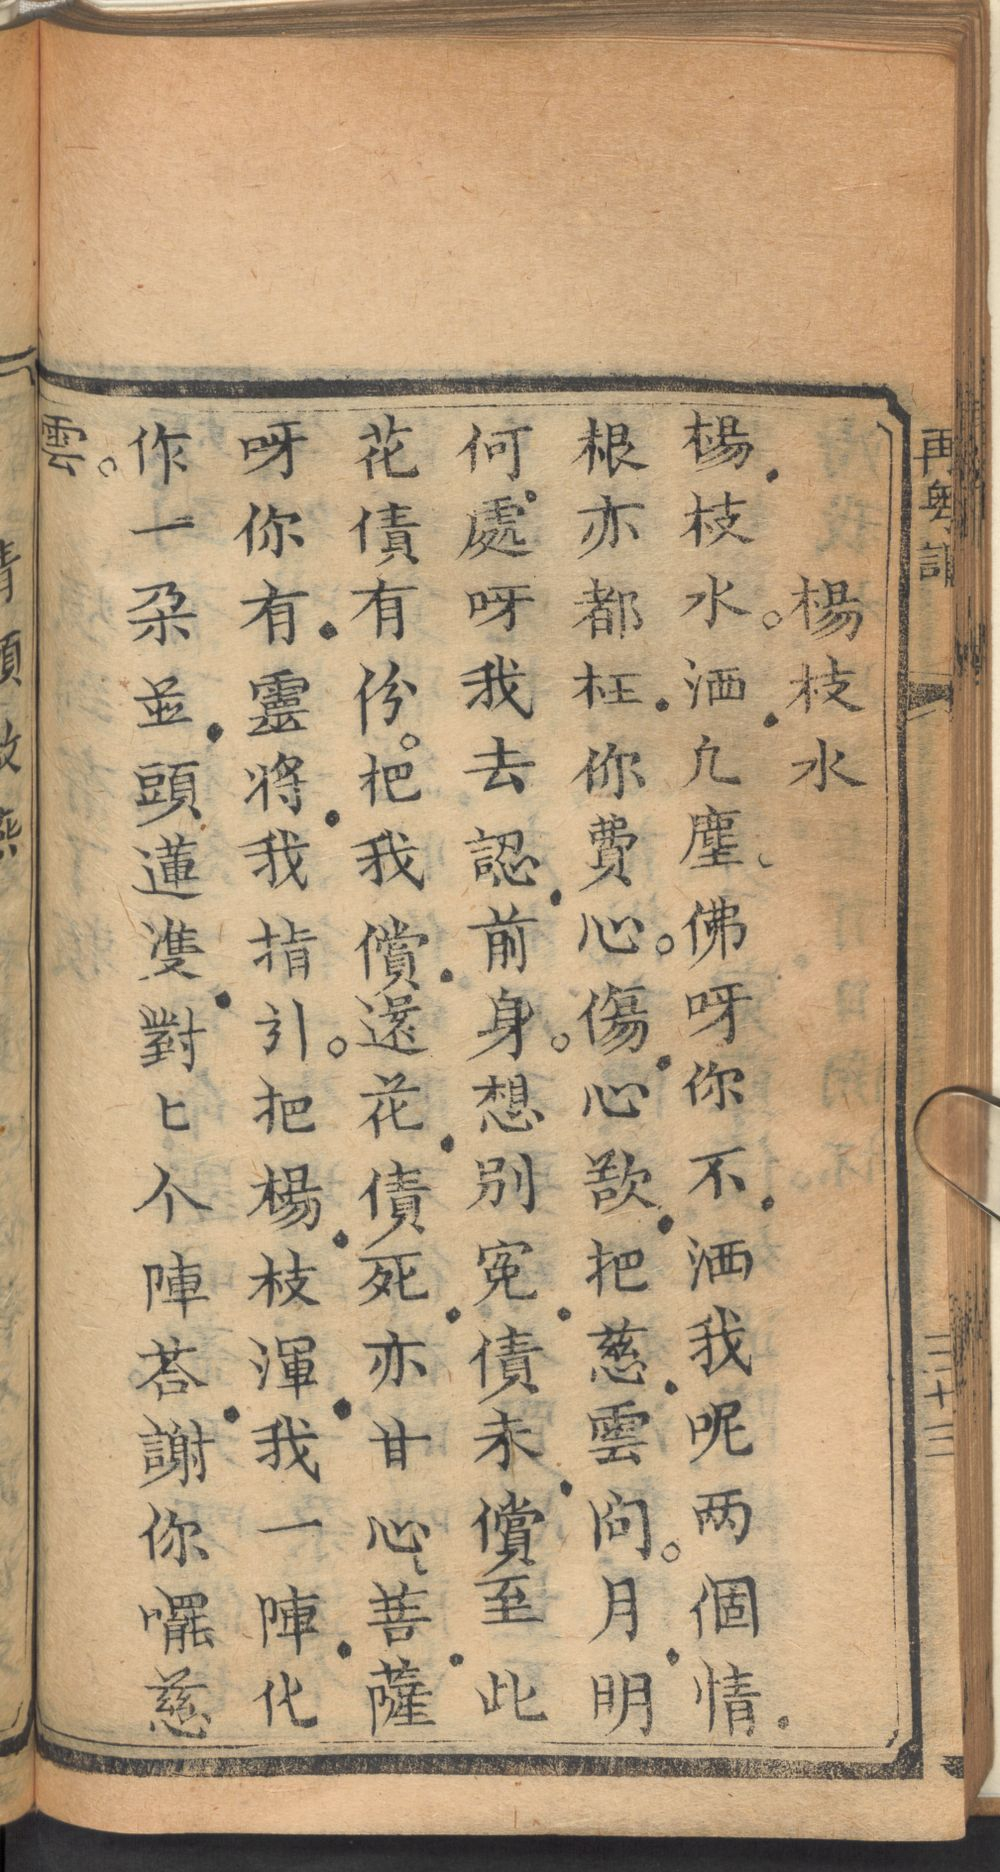 再粤謳
楊枝水
楊枝水。洒凢塵佛呀你不洒我呢两個情
根亦都枉你費心。傷心欲把慈雲问。月明
何處呀我去認前身。想别冤債未償至此
花債有份。把我償還花債死亦甘心菩薩
呀你有靈將我指引。把楊枝渾我一陣化
作一朶並頭蓮雙對匕个陣荅謝你㘔慈
雲。